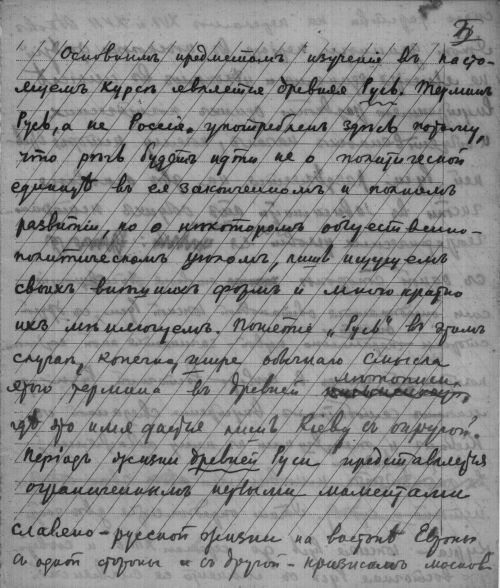 Основнымъ предметомъ изученія въ насто-
ящемъ курсѣ является древняя Русь. Терминъ
Русь, а не Россія, употребленъ здѣсь потому,
что рѣчь будетъ идти не о политической
единицѣ въ ея законченномъ и полномъ
развитіи, но о нѣкоторомъ общественно-
политическомъ цѣломъ, лишь ищущемъ
своихъ внѣшнихъ формъ и многократно
ихъ мѣняющемъ. Понятіе „Русь" въ этомъ
случаѣ, конечно, шире обычнаго смысла
этого термина въ древней лѣтописи
гдѣ это имя дается лишь Кіеву съ округой.
Періодъ жизни древней Руси представляется
ограниченнымъ первыми моментами
славяно-русской жизни на востокѣ Европы
съ одной стороны и съ другой - кризисомъ москов-